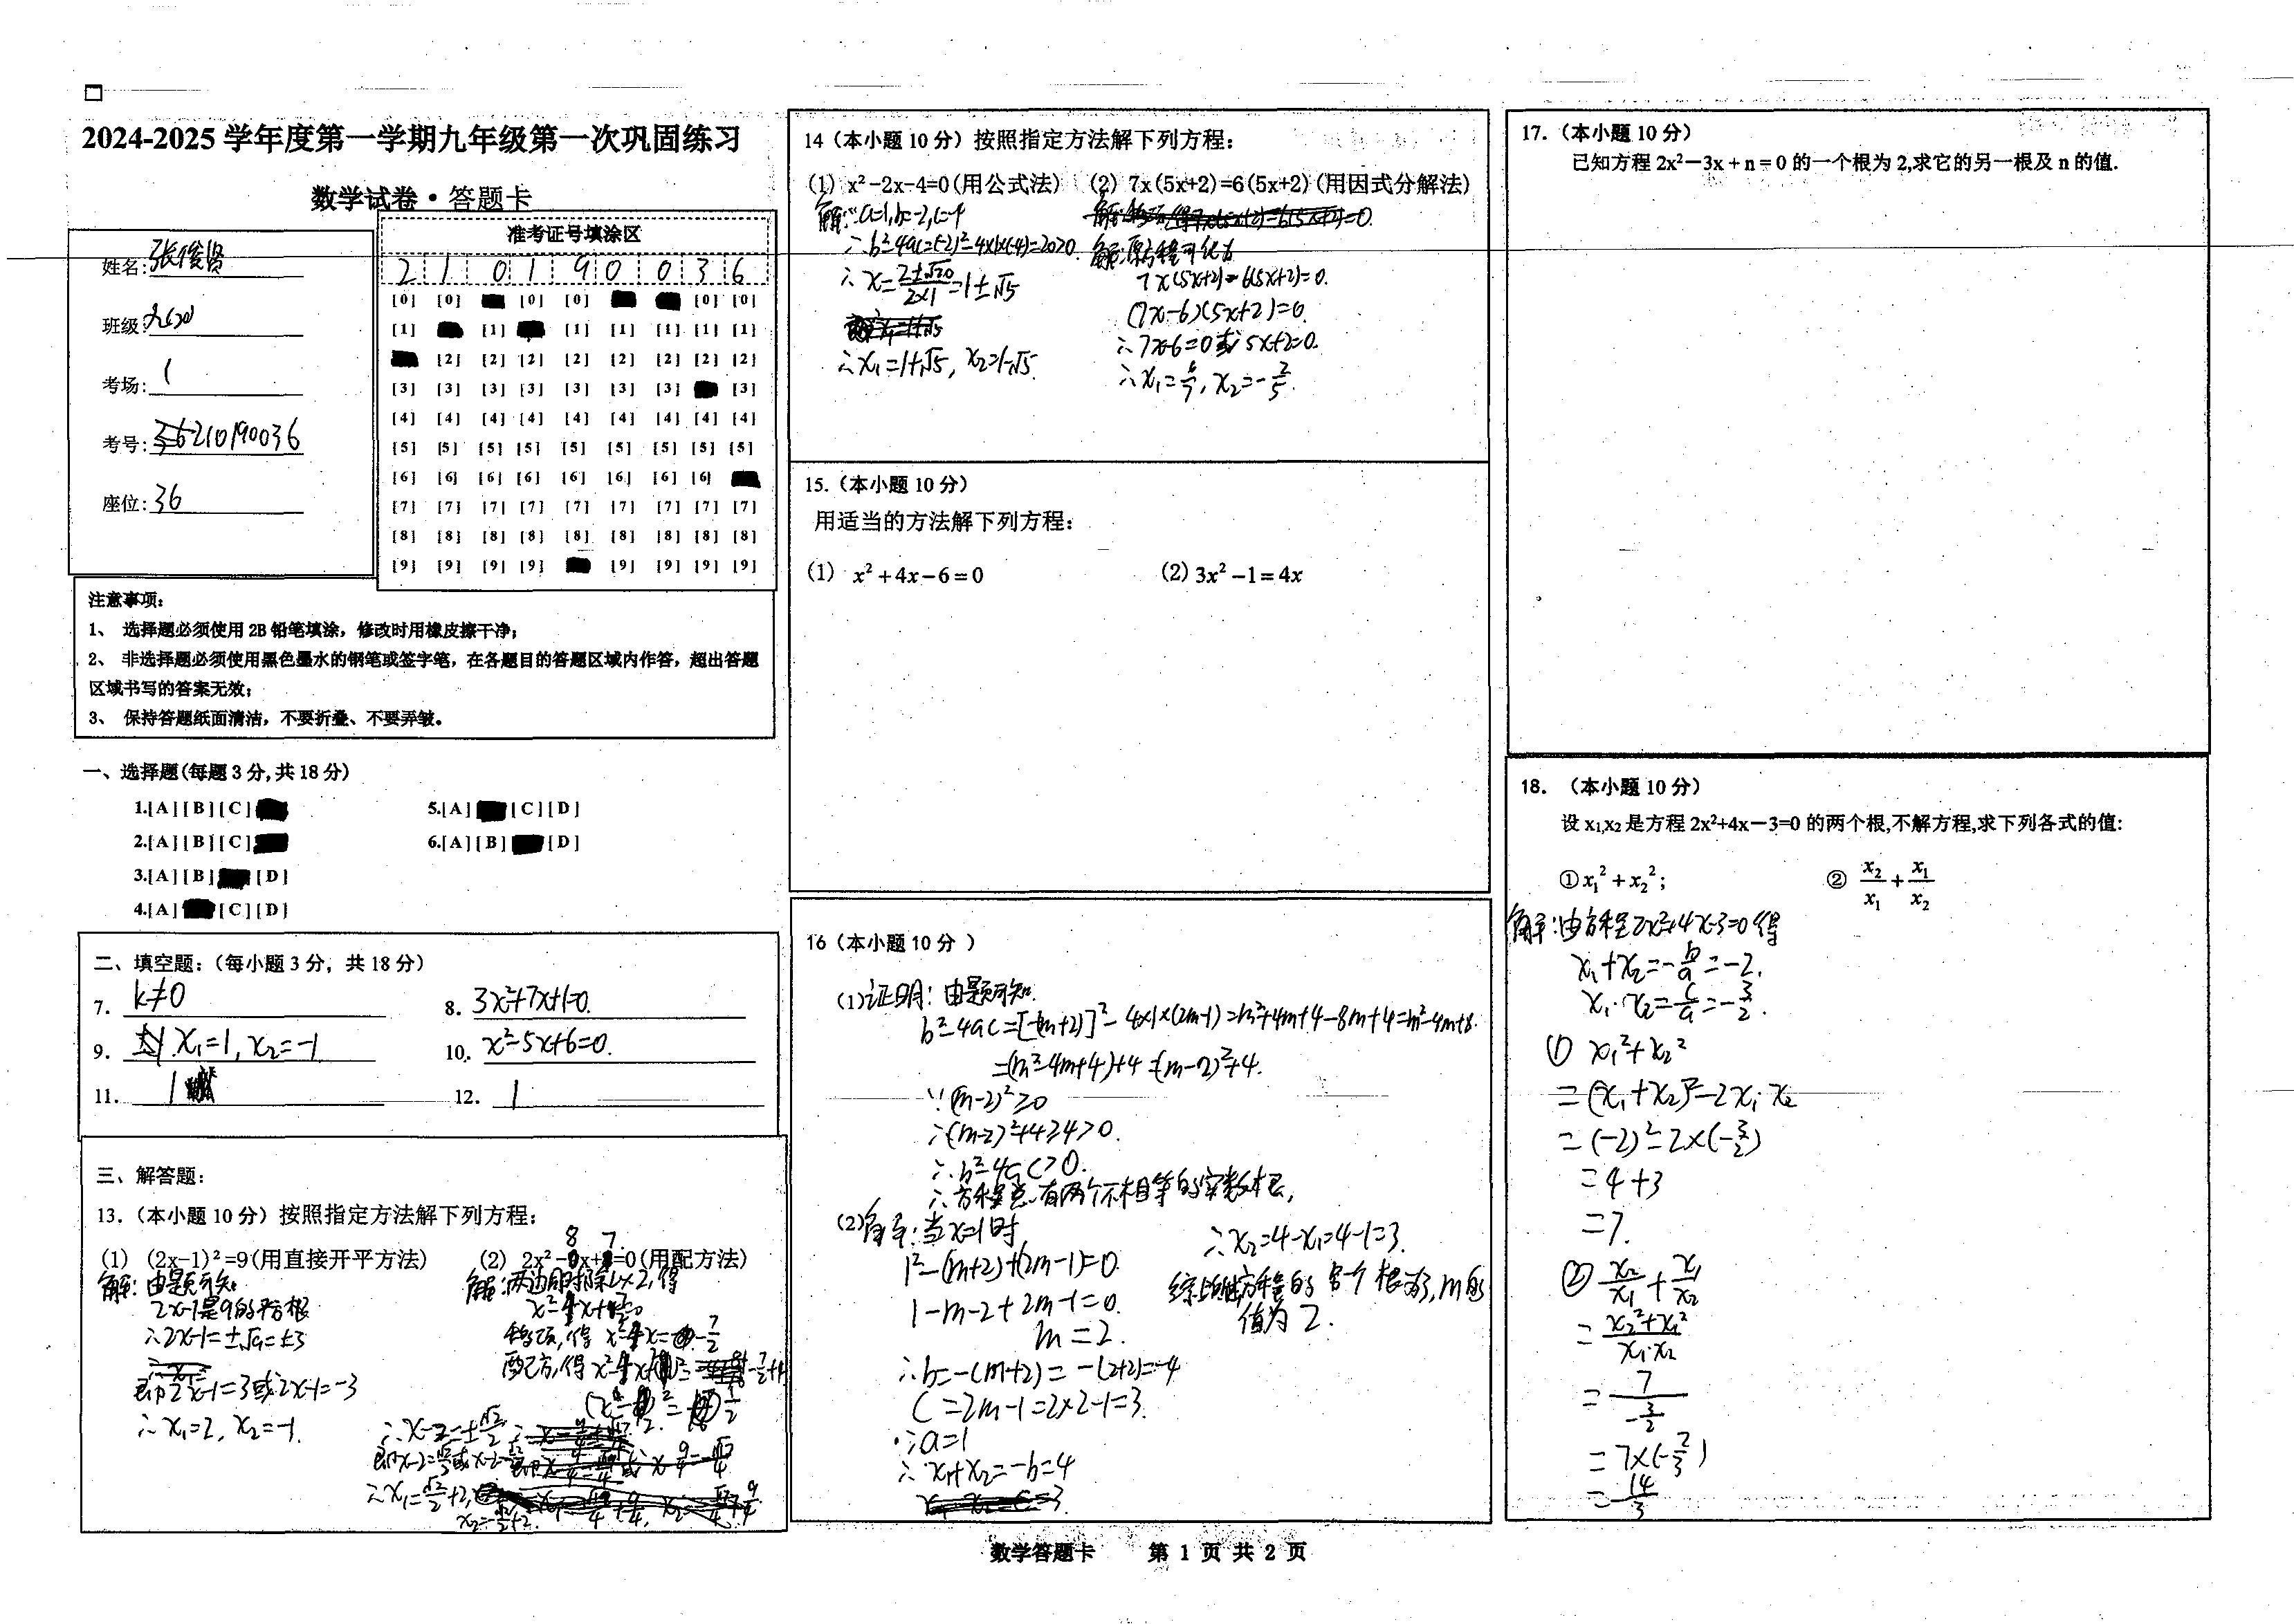 2024-2025 学年度第一学期九年级第一次巩固练习
数学试卷·答题卡
姓名:张俊贤
班级:
考场:1
考号:210190036
座位:36
准考证号填涂区
2 1 0 1 9 0 0 3 6
[0] [0] [0] [0] [0] [0]
[1] [1] [1] [1] [1] [1] [1]
[2] [2] [2] [2] [2] [2] [2] [2]
[3] [3] [3] [3] [3] [3] [3] [3]
[4] [4] [4] [4] [4] [4] [4] [4] [4]
[5] [5] [5] [5] [5] [5] [5] [5] [5]
[6] [6] [6] [6] [6] [6] [6] [6]
[7] [7] [7] [7] [7] [7] [7] [7] [7]
[8] [8] [8] [8] [8] [8] [8] [8] [8]
[9] [9] [9] [9] [9] [9] [9] [9]
注意事项:
1、 选择题必须使用 2B 铅笔填涂，修改时用橡皮擦干净；
2、 非选择题必须使用黑色墨水的钢笔或签字笔，在各题目的答题区域内作答，超出答题
区域书写的答案无效；
3、 保持答题纸面清洁，不要折叠、不要弄皱。
一、选择题(每题 3 分,共 18 分)
1.[A][B][C] 5.[A] [C][D]
2.[A][B][C] 6.[A][B] [D]
3.[A][B] [D]
4.[A] [C][D]
二、填空题:（每小题 3 分，共 18 分）
7. k≠0 8. 3x²+7x+1=0.
9. x₁=1, x₂=-1 10. x²-5x+6=0.
11. 1 12. 1
三、解答题:
13.（本小题 10 分）按照指定方法解下列方程:
(1) (2x-1)²=9(用直接开平方法)
解: 由题可知
2x-1是9的平方根
∴2x-1=±√9=±3
即2x-1=3或2x-1=-3
∴x₁=2, x₂=-1.
(2) 2x²-8x+7=0(用配方法)
解:两边同时除以2,得
x²-4x+7/2=0
移项,得 x²-4x=-7/2
∴x-2=±√2/2
14（本小题 10 分）按照指定方法解下列方程:
(1) x²-2x-4=0(用公式法)
解:∵a=1,b=-2,c=-4
∴b²-4ac=(-2)²-4×1×(-4)=20>0.
∴x=(2±√20)/(2×1)=1±√5
∴x₁=1+√5, x₂=1-√5.
(2) 7x(5x+2)=6(5x+2)(用因式分解法)
解:原方程可化为
7x(5x+2)-6(5x+2)=0.
(7x-6)(5x+2)=0.
∴7x-6=0或5x+2=0.
∴x₁=6/7, x₂=-2/5.
15.（本小题 10 分）
用适当的方法解下列方程:
(1) x²+4x-6=0 (2) 3x²-1=4x
16（本小题 10 分 ）
(1)证明: 由题可知.
b²-4ac=[-(m+2)]²-4×1×(2m-1)=m²+4m+4-8m+4=m²-4m+8.
=(m²-4m+4)+4=(m-2)²+4.
∵(m-2)²≥0
∴(m-2)²+4≥4>0.
∴b²-4ac>0.
∴方程总有两个不相等的实数根.
(2)解:当x=1时
1²-(m+2)+(2m-1)=0.
1-m-2+2m-1=0.
m=2.
∴b=-(m+2)=-(2+2)=-4
C=2m-1=2×2-1=3.
∵a=1
∴x₁+x₂=-b=4
∴x₂=4-x₁=4-1=3.
综上所述方程的另一个根为3,m的
值为2.
17.（本小题 10 分）
已知方程 2x²-3x+n=0 的一个根为 2,求它的另一根及 n 的值.
18. （本小题 10 分）
设 x₁,x₂ 是方程 2x²+4x-3=0 的两个根,不解方程,求下列各式的值:
①x₁²+x₂²; ② x₂/x₁+x₁/x₂
解:由方程2x²+4x-3=0得
x₁+x₂=-b/a=-2.
x₁·x₂=c/a=-3/2.
① x₁²+x₂²
=(x₁+x₂)²-2x₁·x₂
=(-2)²-2×(-3/2)
=4+3
=7.
② x₂/x₁+x₁/x₂
=(x₂²+x₁²)/(x₁·x₂)
=7/(-3/2)
=7×(-2/3)
=-14/3
数学答题卡 第 1 页 共 2 页